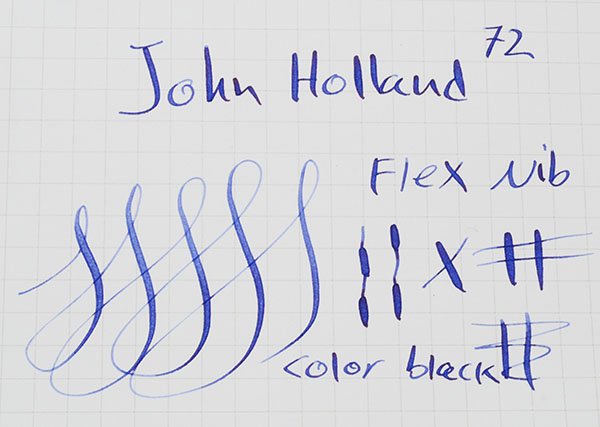 John Holland 72
Flex Nib
X #
color black #